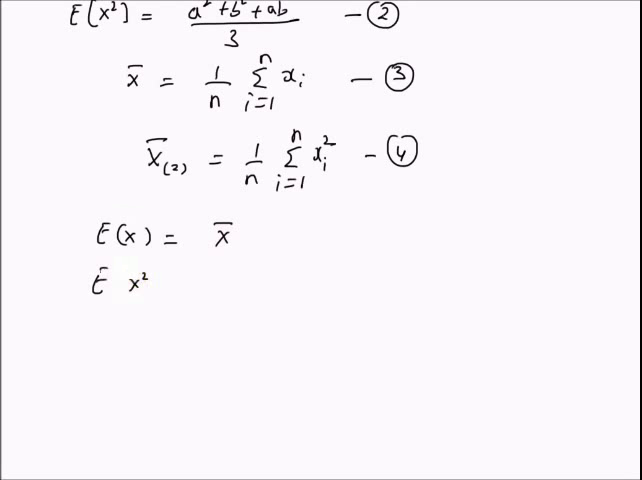 E[x²] = a² + b² + ab / 3 — ②
x̄ = 1/n Σ_{i=1}^{n} xᵢ — ③
X̄₍₂₎ = 1/n Σ_{i=1}^{n} xᵢ² — ④
E(x) = x̄
E x²